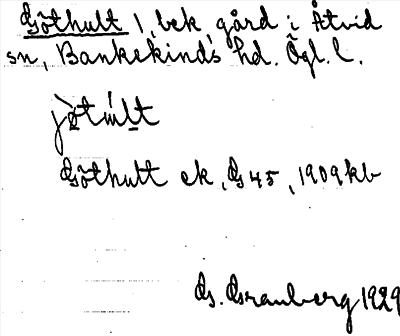 Göthult 1, bek, gård i Åtvid
sn, Bankekinds hd. Ögl. l.
Göthult ek, G 45, 1909 kb
G. Granberg 1929